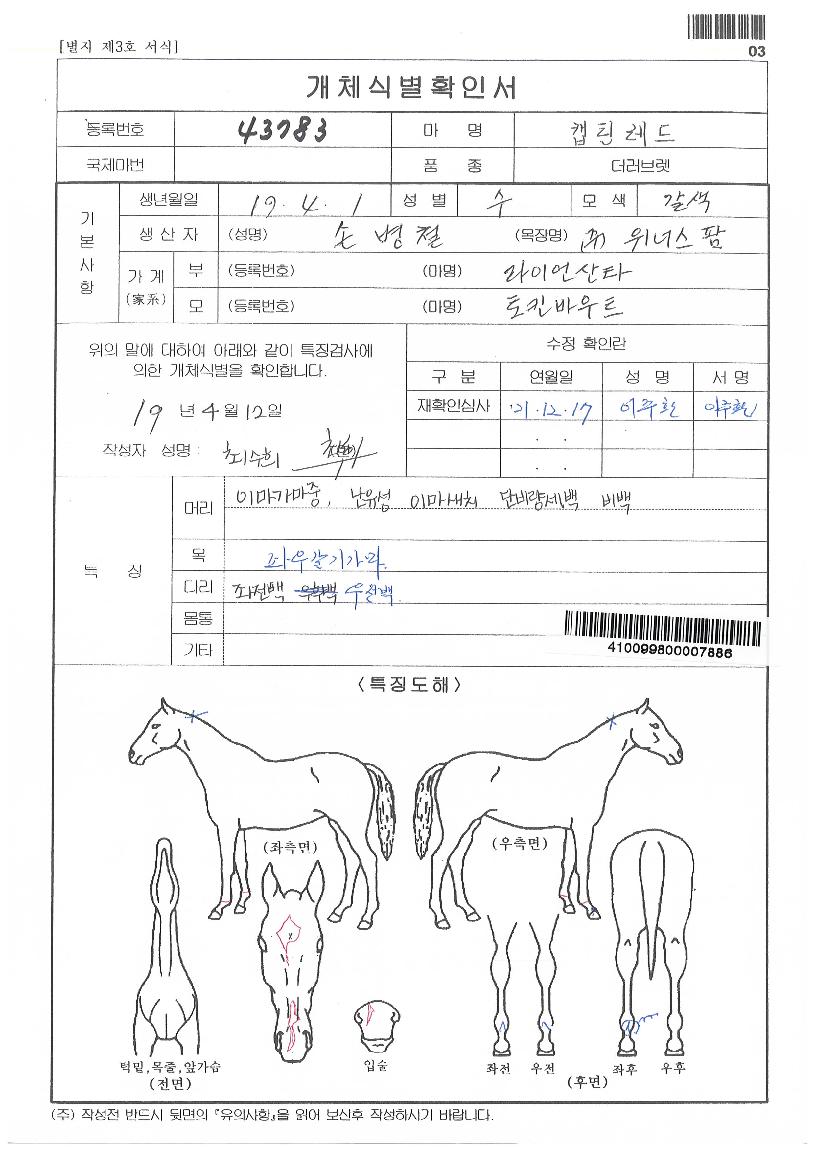 [별지 제3호 서식]
03
개체식별확인서
등록번호 43783 마 명 캡틴레드
국제마번 품 종 더러브렛
기본사항
생년월일 19. 4. 1 성 별 수 모 색 갈색
생 산 자 (성명) 손병철 (목장명) (주) 위너스팜
가 계 (家系)
부 (등록번호) (마명) 라이언산타
모 (등록번호) (마명) 토킨바우트
위의 말에 대하여 아래와 같이 특징검사에
의한 개체식별을 확인합니다.
19 년 4 월 12 일
작성자 성명 : 최수희
수정 확인란
구 분 연월일 성 명 서 명
재확인심사 '21.12.17 이주환 이주환
. .
. .
특 징
머리 이마가마중, 난유성 이마새치 단비량세백 비백
목 좌우갈기가마
다리 좌전백 우전백
몸통
기타
410099800007886
<특징도해>
(좌측면) (우측면)
턱밑,목줄,앞가슴
(전면)
입술
좌전 우전
(후면)
좌후 우후
(주) 작성전 반드시 뒷면의 『유의사항』을 읽어 보신후 작성하시기 바랍니다.